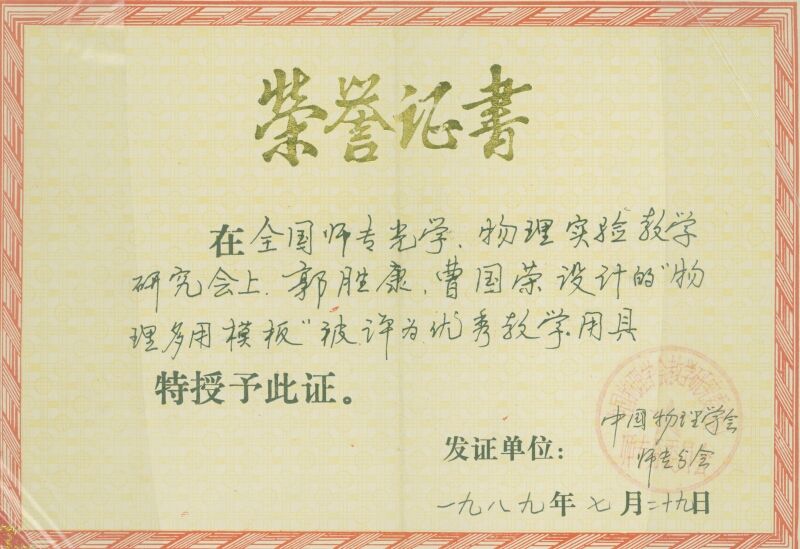 荣誉证书
在全国师专光学、物理实验教学
研究会上,郭胜康、曹国荣设计的"物
理多用模板"被评为优秀教学用具
特授予此证。
中国物理学会
发证单位:师专分会
一九八九年七月二十九日